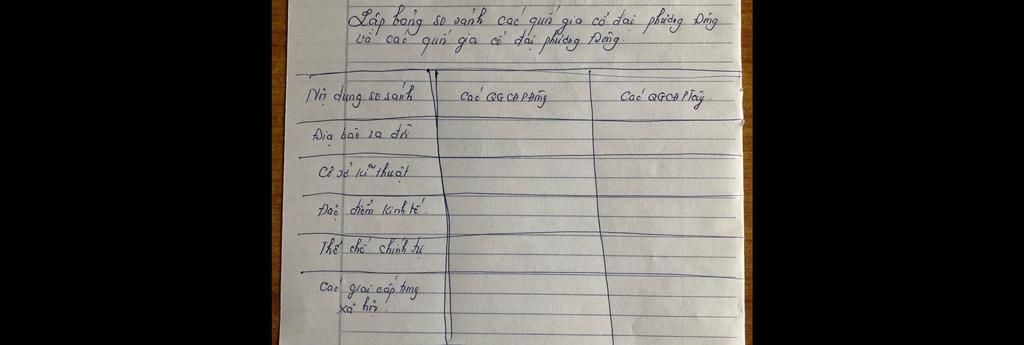 Lập bảng so sánh các quốc gia cổ đại phương Đông
và các quốc gia cổ đại phương Đông.
Nội dung so sánh
Các QGCĐPĐông
Các QGCĐPTây
Địa bàn ra đời
Cơ sở kĩ thuật
Đặc điểm kinh tế
Thể chế chính trị
Các giai cấp trong
xã hội